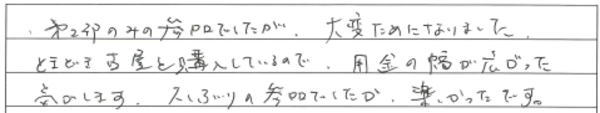 第2部のみの参加でしたが、大変ためになりました。
ときどき古屋を購入しているので、用途の幅が広がった
気がします。久しぶりの参加でしたが、楽しかったです。